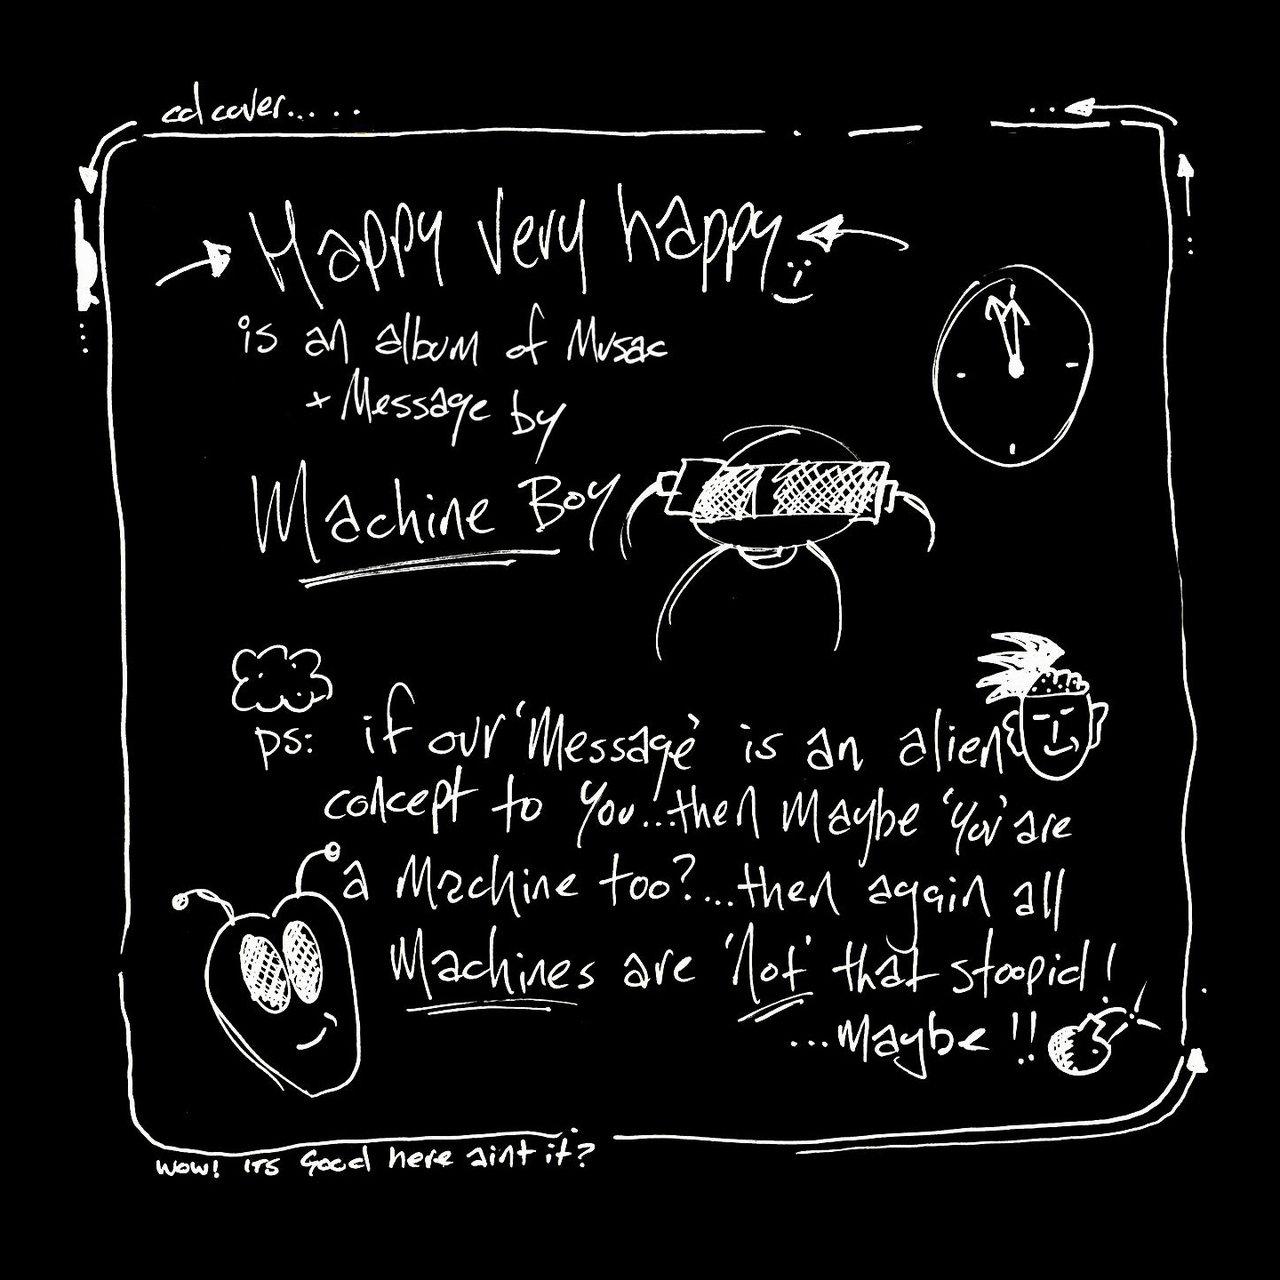 cd cover.....
Happy very happy
is an album of Musac
+ Message by
Machine Boy
ps: if our 'Message' is an alien
concept to you...then maybe 'you' are
a machine too?...then again all
Machines are 'not' that stoopid!
...maybe !!
wow! its good here aint it?